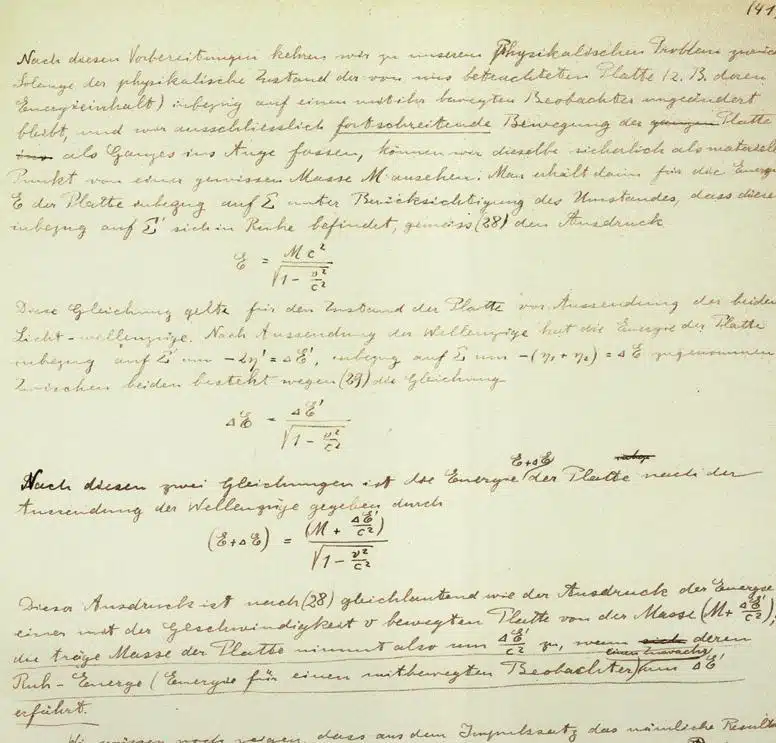 (41
Nach diesen Vorbereitungen kehren wir zu unserem physikalischen Problem zurück
Solange der physikalische Zustand der von uns betrachteten Platte (z. B. deren
Energieinhalt) inbezug auf einen mit ihr bewegten Beobachter ungeändert
bleibt, und wir ausschliesslich fortschreitende Bewegung der ganzen Platte
als Ganzes ins Auge fassen, können wir dieselbe sicherlich als materiell
Punkt von einer gewissen Masse M ansehen. Man erhält dann für die Energie
E der Platte inbezug auf Σ unter Berücksichtigung des Umstandes, dass diese
inbezug auf Σ' sich in Ruhe befindet, gemäss (28) den Ausdruck
E = Mc² / √(1 - v²/c²)
Diese Gleichung gelte für den Zustand der Platte vor Aussendung der beiden
Licht-wellenzüge. Nach Aussendung der Wellenzüge hat die Energie der Platte
inbezug auf Σ' um -2η' = ΔE', inbezug auf Σ um -(η₁ + η₂) = ΔE zugenommen
Zwischen beiden besteht wegen (29) die Gleichung
ΔE = ΔE' / √(1 - v²/c²)
E+ΔE
Nach diesen zwei Gleichungen ist die Energie der Platte nach der
Aussendung der Wellenzüge gegeben durch
(E+ΔE) = (M + ΔE'/c²) / √(1 - v²/c²)
Dieser Ausdruck ist nach (28) gleichlautend wie der Ausdruck der Energie
einer mit der Geschwindigkeit v bewegten Platte von der Masse (M + ΔE'/c²);
die träge Masse der Platte nimmt also um ΔE'/c² zu, wenn sich deren
einen Zuwachs
Ruh-Energie (Energie für einen mitbewegten Beobachter) um ΔE'
erfährt.
Wir müssen noch zeigen, dass aus dem Impulssatz das nämliche Resultat